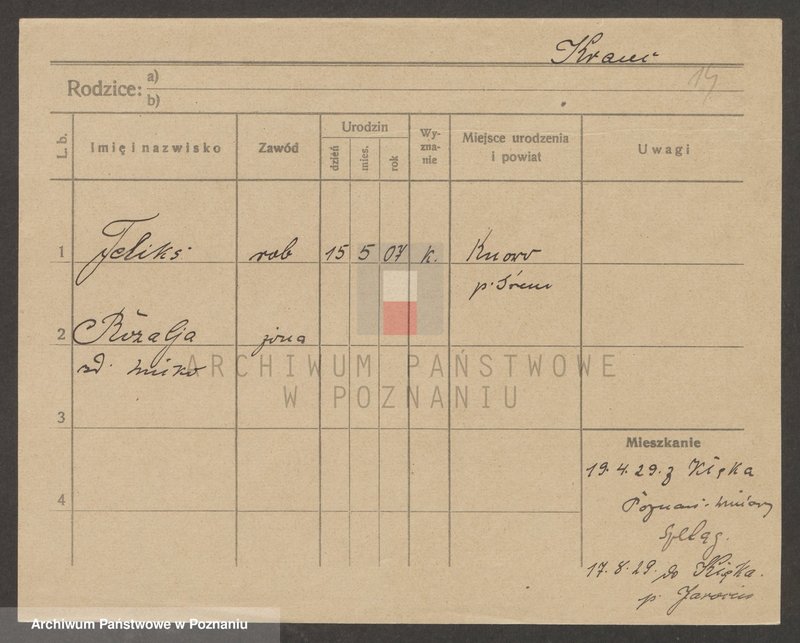 Kraus
14
Rodzice: a)
b)
L. b.
Imię i nazwisko
Zawód
Urodzin
dzień
mies.
rok
Wyznanie
Miejsce urodzenia i powiat
Uwagi
1 Feliks rob 15 5 07 k.
p. Śrem
2 Rozalja żona
3
Mieszkanie
19.4.29. z Kiąka
4
Poznań
17.8.29. do Kiąka.
p. Jarocin
ARCHIWUM PAŃSTWOWE
W POZNANIU
Archiwum Państwowe w Poznaniu